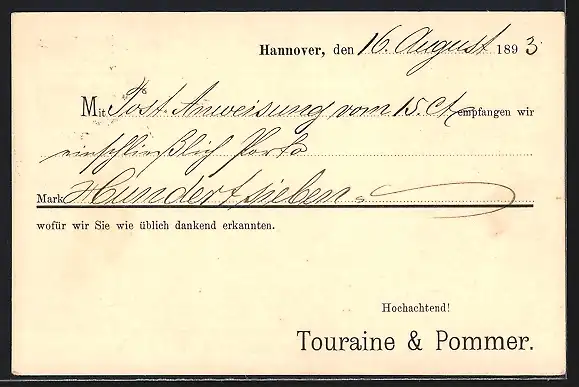 Hannover, den 16. August 1893
Mit Post-Anweisung vom 15. Ct. empfangen wir
einschließlich Porto
Mark Hundertsieben
wofür wir Sie wie üblich dankend erkannten.
Hochachtend!
Touraine & Pommer.